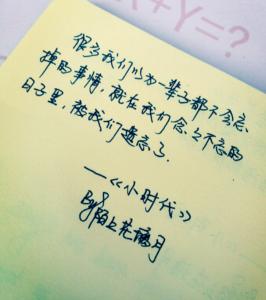 X+Y=?
很多我们以为一辈子都不会忘
掉的事情，就在我们念念不忘的
日子里，被我们遗忘了.
——《小时代》
By 陌上花璃月